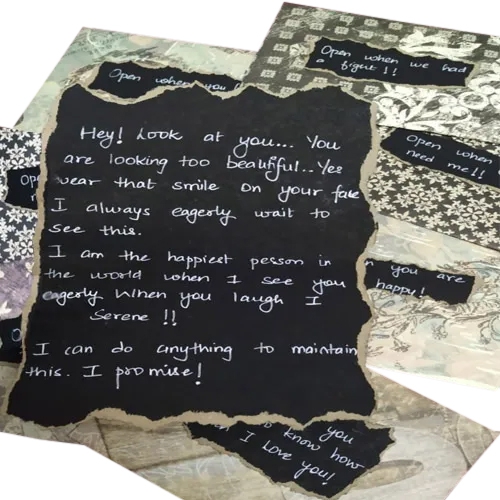 Open when you
Open when we had
a fight!!
Open when
need me!!
Hey! Look at you... You
are looking too beatiful.. Yes
wear that smile on your fake
I always eagerly wait to
see this.
I am the happiest person in
the world when I see you
eagerly When you laugh I
Serene !!
I can do anything to maintain
this. I promise!
n you are
happy!
you
to know how
I love you!